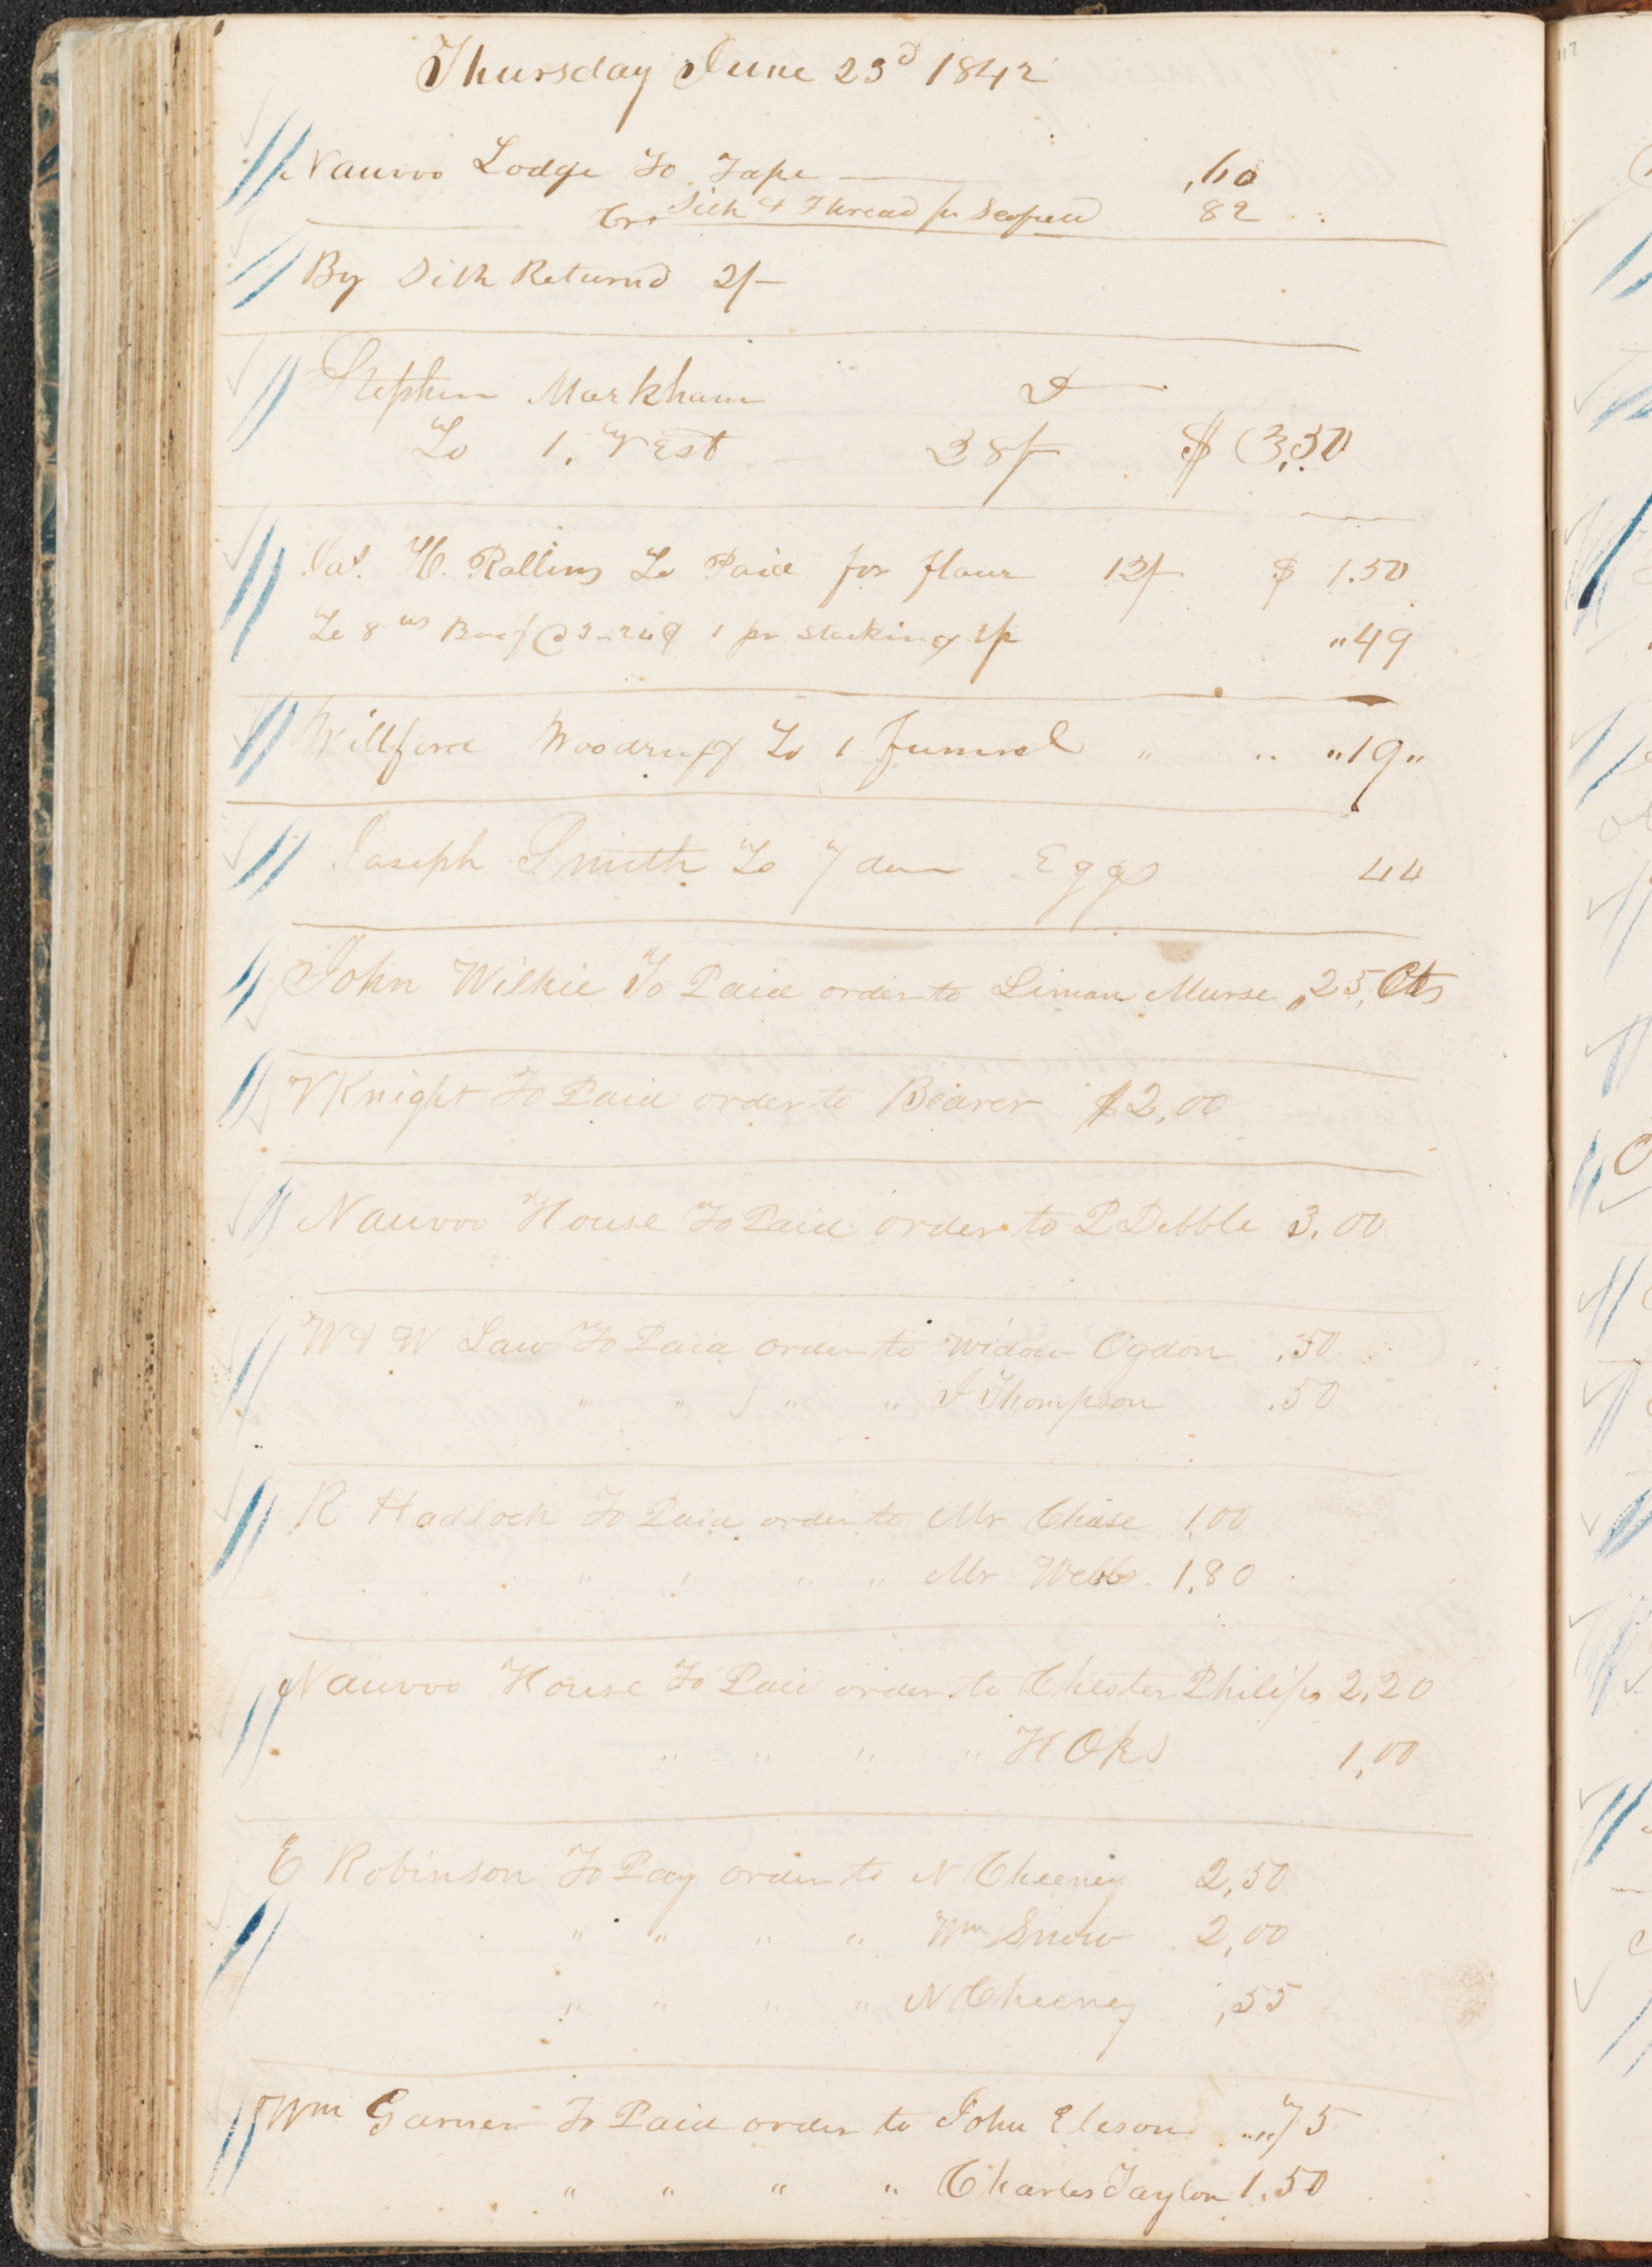 Thursday June 23d 1842
Nauvoo Lodge To Tape ,60
Silk & Thread pr 82
Cr.
By Silk Returnd 2/–
Stephen Markham
To 1. Vest 28/– $ 3,50
Jas. H. Rollins To Paid for flour 12/– $ 1.50
To 8 lbs Beef @ 3–24¢ 1 pr stocking 2/– "49
Willford Woodruff To 1 funnel " " "19"
Joseph Smith To 7 dozn Eggs 44
John Wilkie To Paid order to Liman Murse ,25, Cts
V Knight To Paid order to Bearer $2,00
Nauvoo House To Paid order to P Dibble 3,00
W & W Law To Paid order to Widow Ogdon ,50
" " " " J Thompson .50
R Hadlock To Paid order to Mr Chase 1,00
" " " " Mr Webb 1,80
Nauvoo House To Paid order to Chester Philips 2,20
" " " " H Oks 1,00
E Robinson To Pay order to N Cheeney 2,50
" " " " Wm Snow 2,00
" " " " N Cheeney ,55
Wm Garner To Paid order to John Eleson "75
" " " " Charles Taylor 1.50
117